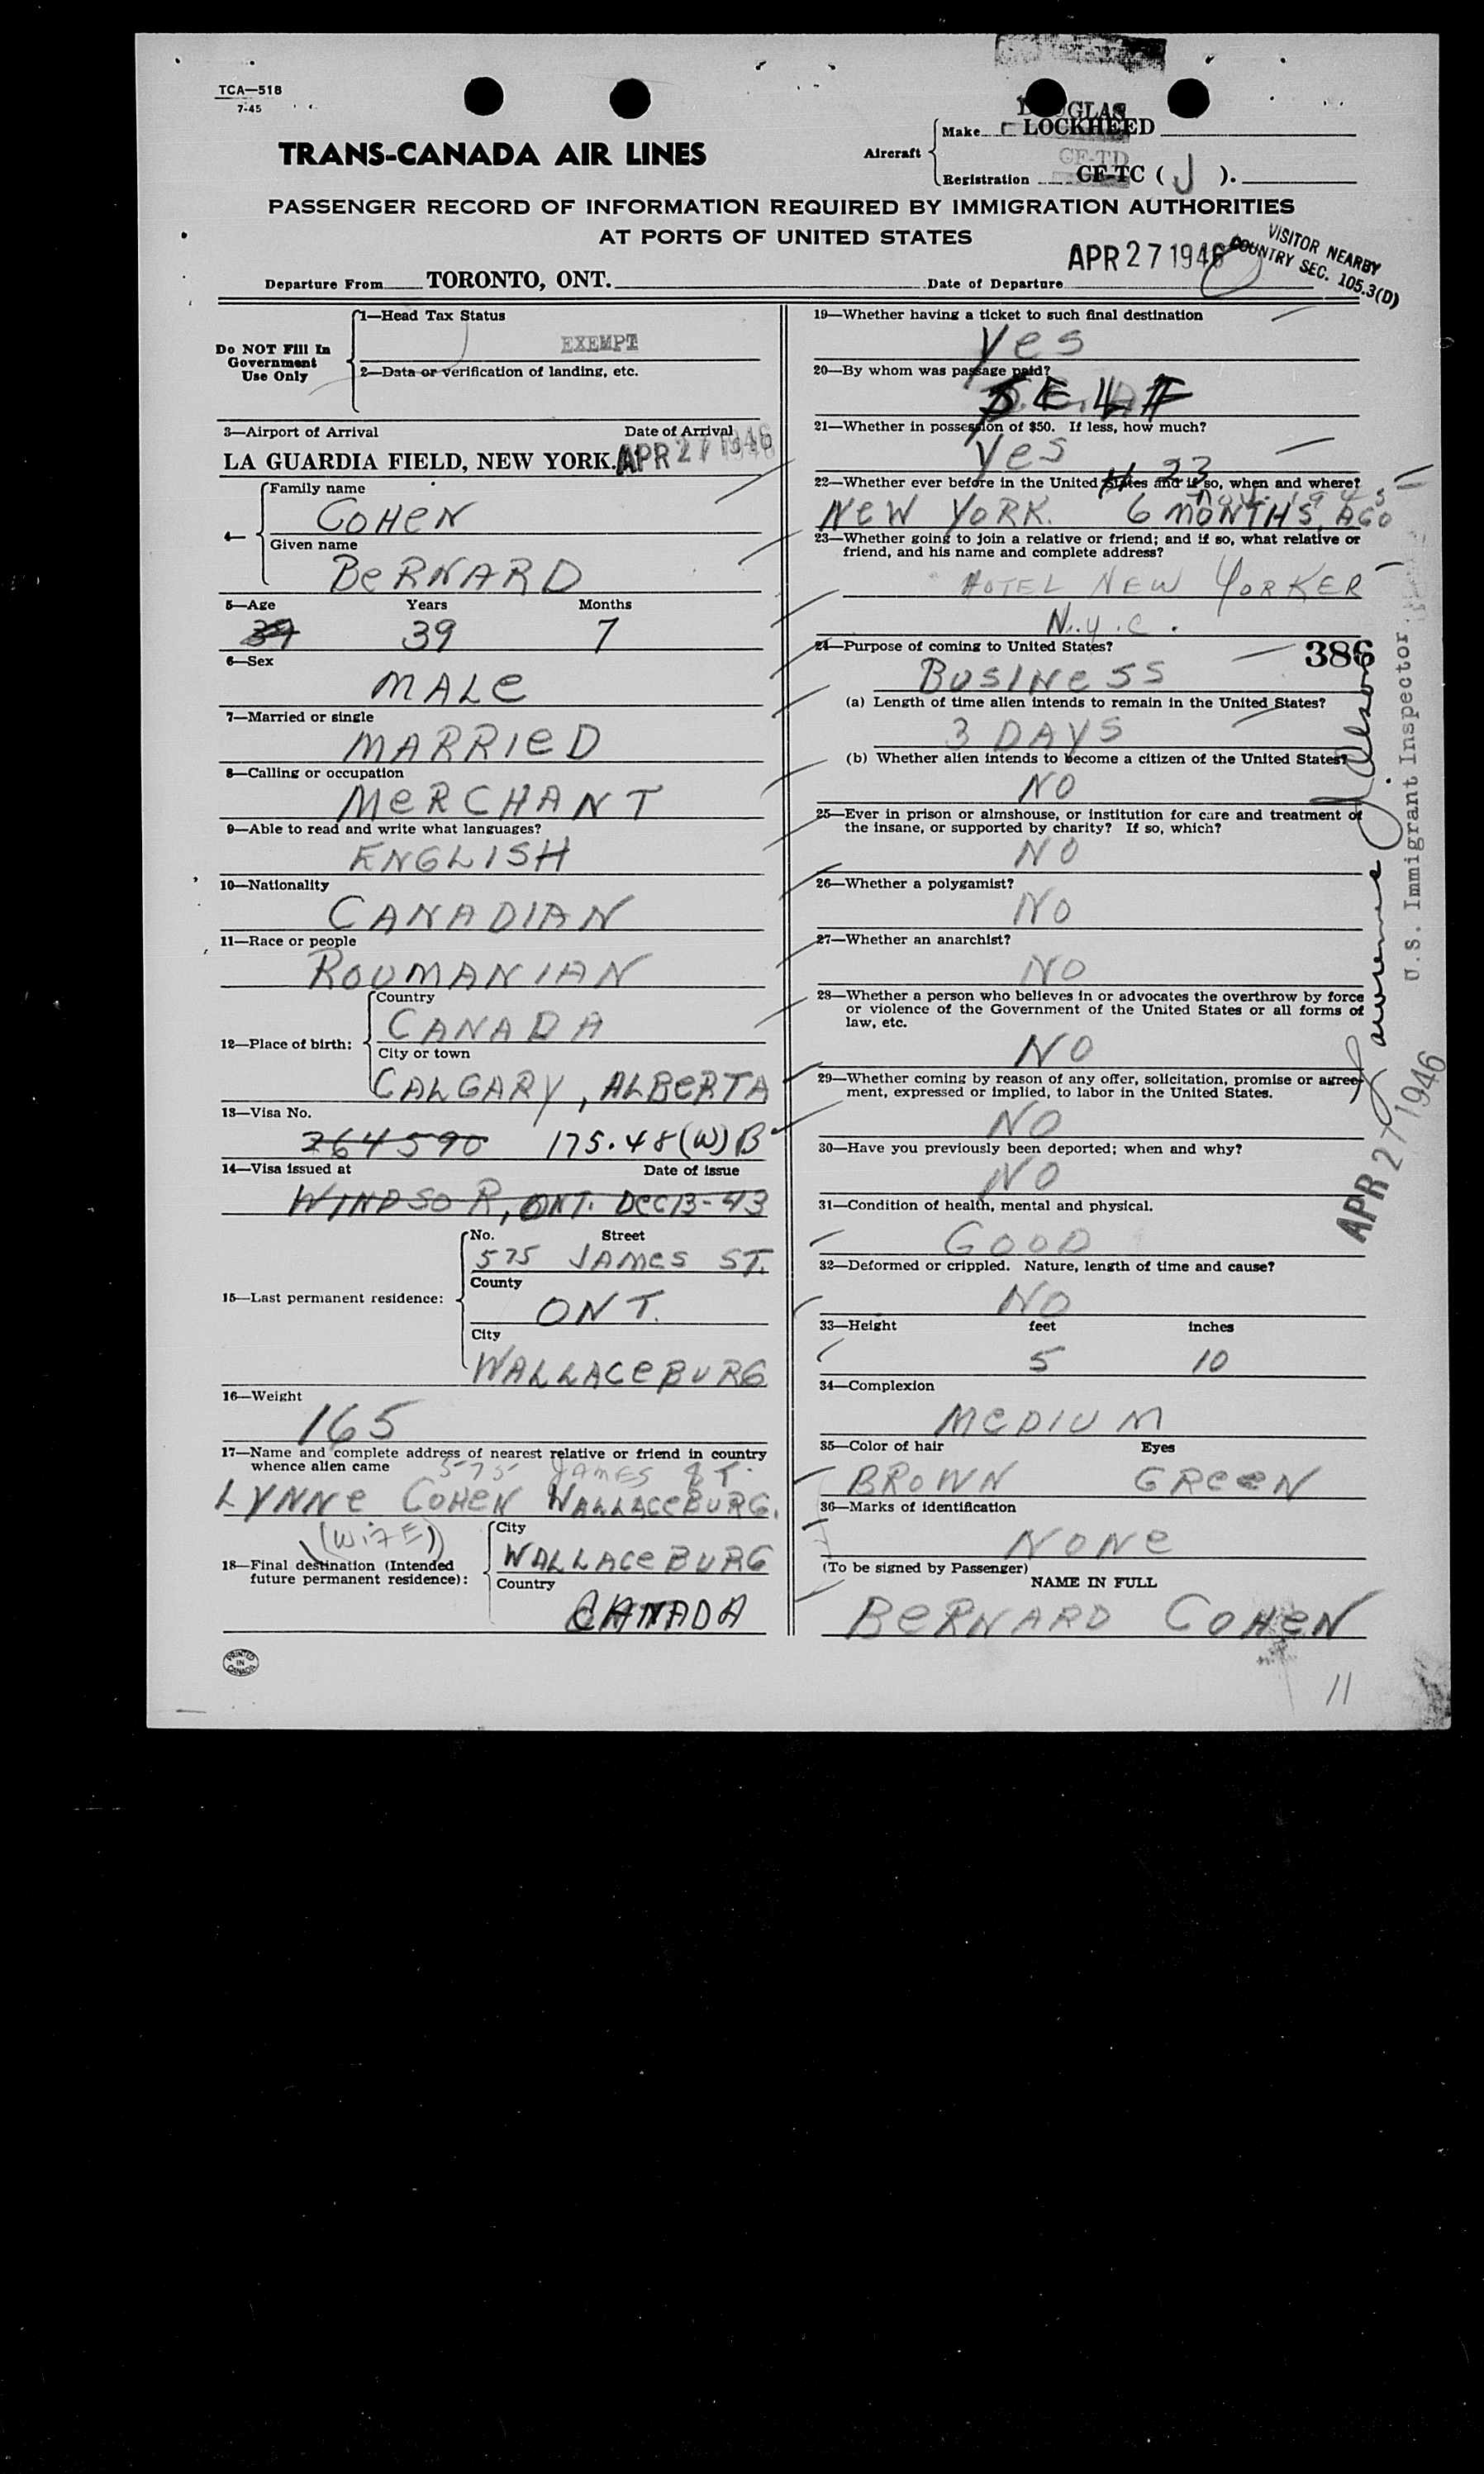 TCA—518
7-45
TRANS-CANADA AIR LINES
Aircraft
Make LOCKHEED
CF-TD
Registration CF-TC ( J ).
PASSENGER RECORD OF INFORMATION REQUIRED BY IMMIGRATION AUTHORITIES
AT PORTS OF UNITED STATES
VISITOR NEARBY
COUNTRY SEC. 105.3(D)
Departure From TORONTO, ONT. Date of Departure APR 27 1946
Do NOT Fill In
Government
Use Only
1—Head Tax Status
EXEMPT
2—Data or verification of landing, etc.
3—Airport of Arrival Date of Arrival
LA GUARDIA FIELD, NEW YORK. APR 27 1946
4— Family name
COHEN
Given name
BERNARD
5—Age Years Months
39 39 7
6—Sex
MALE
7—Married or single
MARRIED
8—Calling or occupation
MERCHANT
9—Able to read and write what languages?
ENGLISH
10—Nationality
CANADIAN
11—Race or people
ROUMANIAN
12—Place of birth:
Country
CANADA
City or town
CALGARY, ALBERTA
13—Visa No.
264590 175.48(W)B
14—Visa issued at Date of issue
WINDSOR, ONT. DEC 13-43
15—Last permanent residence:
No. Street
575 JAMES ST.
County
ONT.
City
WALLACEBURG
16—Weight
165
17—Name and complete address of nearest relative or friend in country
whence alien came 575 JAMES ST.
LYNNE COHEN WALLACEBURG.
(WIFE)
18—Final destination (Intended
future permanent residence):
City
WALLACEBURG
Country
CANADA
PRINTED
IN
CANADA
19—Whether having a ticket to such final destination
YES
20—By whom was passage paid?
SELF
21—Whether in possession of $50. If less, how much?
YES
22—Whether ever before in the United States and if so, when and where?
NEW YORK. 6 MONTHS AGO
23—Whether going to join a relative or friend; and if so, what relative or
friend, and his name and complete address?
HOTEL NEW YORKER
N.Y.C.
24—Purpose of coming to United States?
386
BUSINESS
(a) Length of time alien intends to remain in the United States?
3 DAYS
(b) Whether alien intends to become a citizen of the United States?
NO
25—Ever in prison or almshouse, or institution for care and treatment of
the insane, or supported by charity? If so, which?
NO
26—Whether a polygamist?
NO
27—Whether an anarchist?
NO
28—Whether a person who believes in or advocates the overthrow by force
or violence of the Government of the United States or all forms of
law, etc.
NO
29—Whether coming by reason of any offer, solicitation, promise or agree-
ment, expressed or implied, to labor in the United States.
NO
30—Have you previously been deported; when and why?
NO
31—Condition of health, mental and physical.
GOOD
32—Deformed or crippled. Nature, length of time and cause?
NO
33—Height feet inches
5 10
34—Complexion
MEDIUM
35—Color of hair Eyes
BROWN GREEN
36—Marks of identification
NONE
(To be signed by Passenger)
NAME IN FULL
BERNARD COHEN
11
U.S. Immigrant Inspector.
APR 27 1946